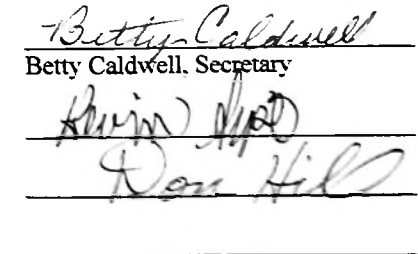 Betty Caldwell
Betty Caldwell, Secretary
Don Hill